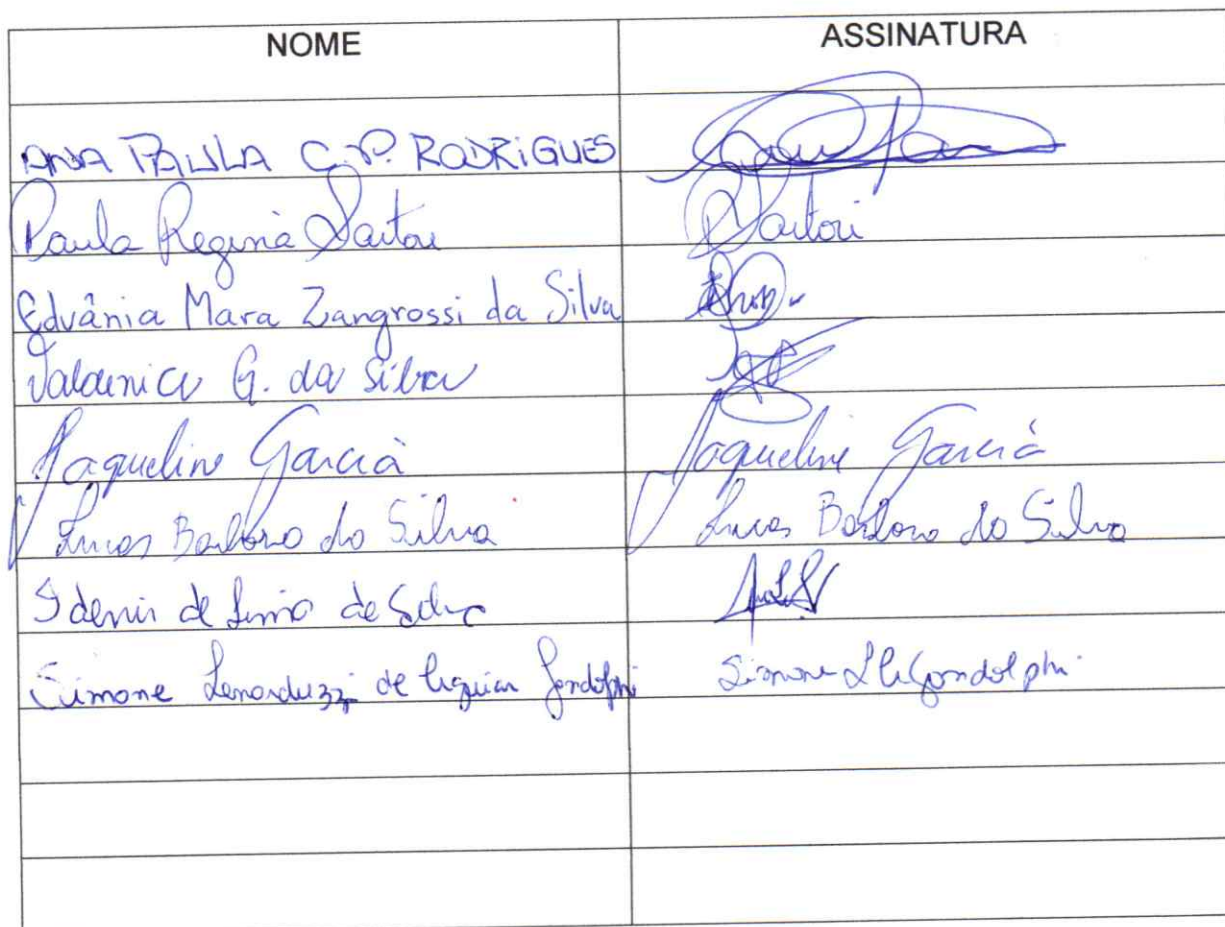 NOME ASSINATURA
ANA PAULA C.P. RODRIGUES
Paula Regina Sartori Sartori
Edvânia Mara Zangrossi da Silva
G. da Silva
Jaqueline Garcia Jaqueline Garcia
Lucas Barbosa da Silva Lucas Barbosa da Silva
de Lima da Silva
Simone Lenarduzzi de Simone